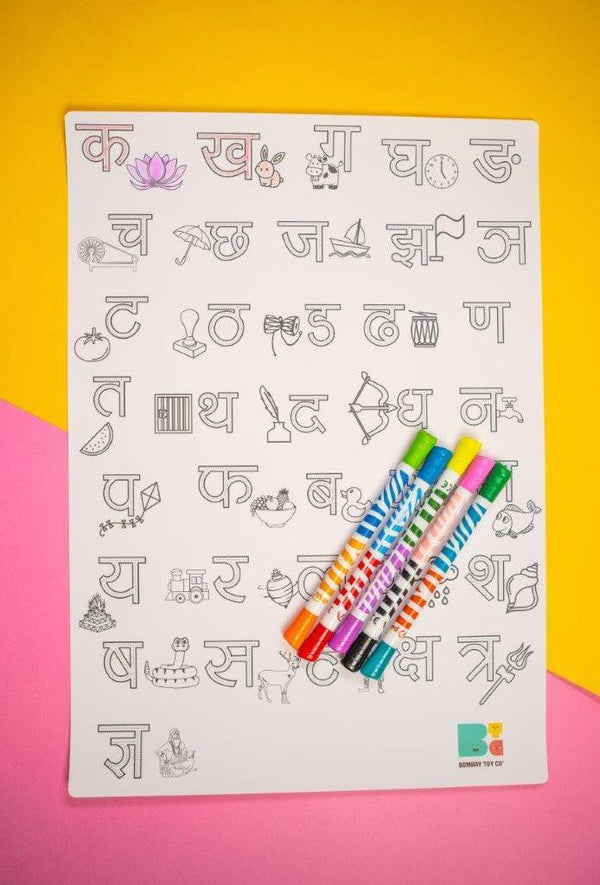 क ख ग घ ङ
च छ ज झ ञ
ट ठ ड ढ ण
त थ द ध न
प फ ब
य र श
ष स क्ष त्र
ज्ञ
BOMBAY TOY CO